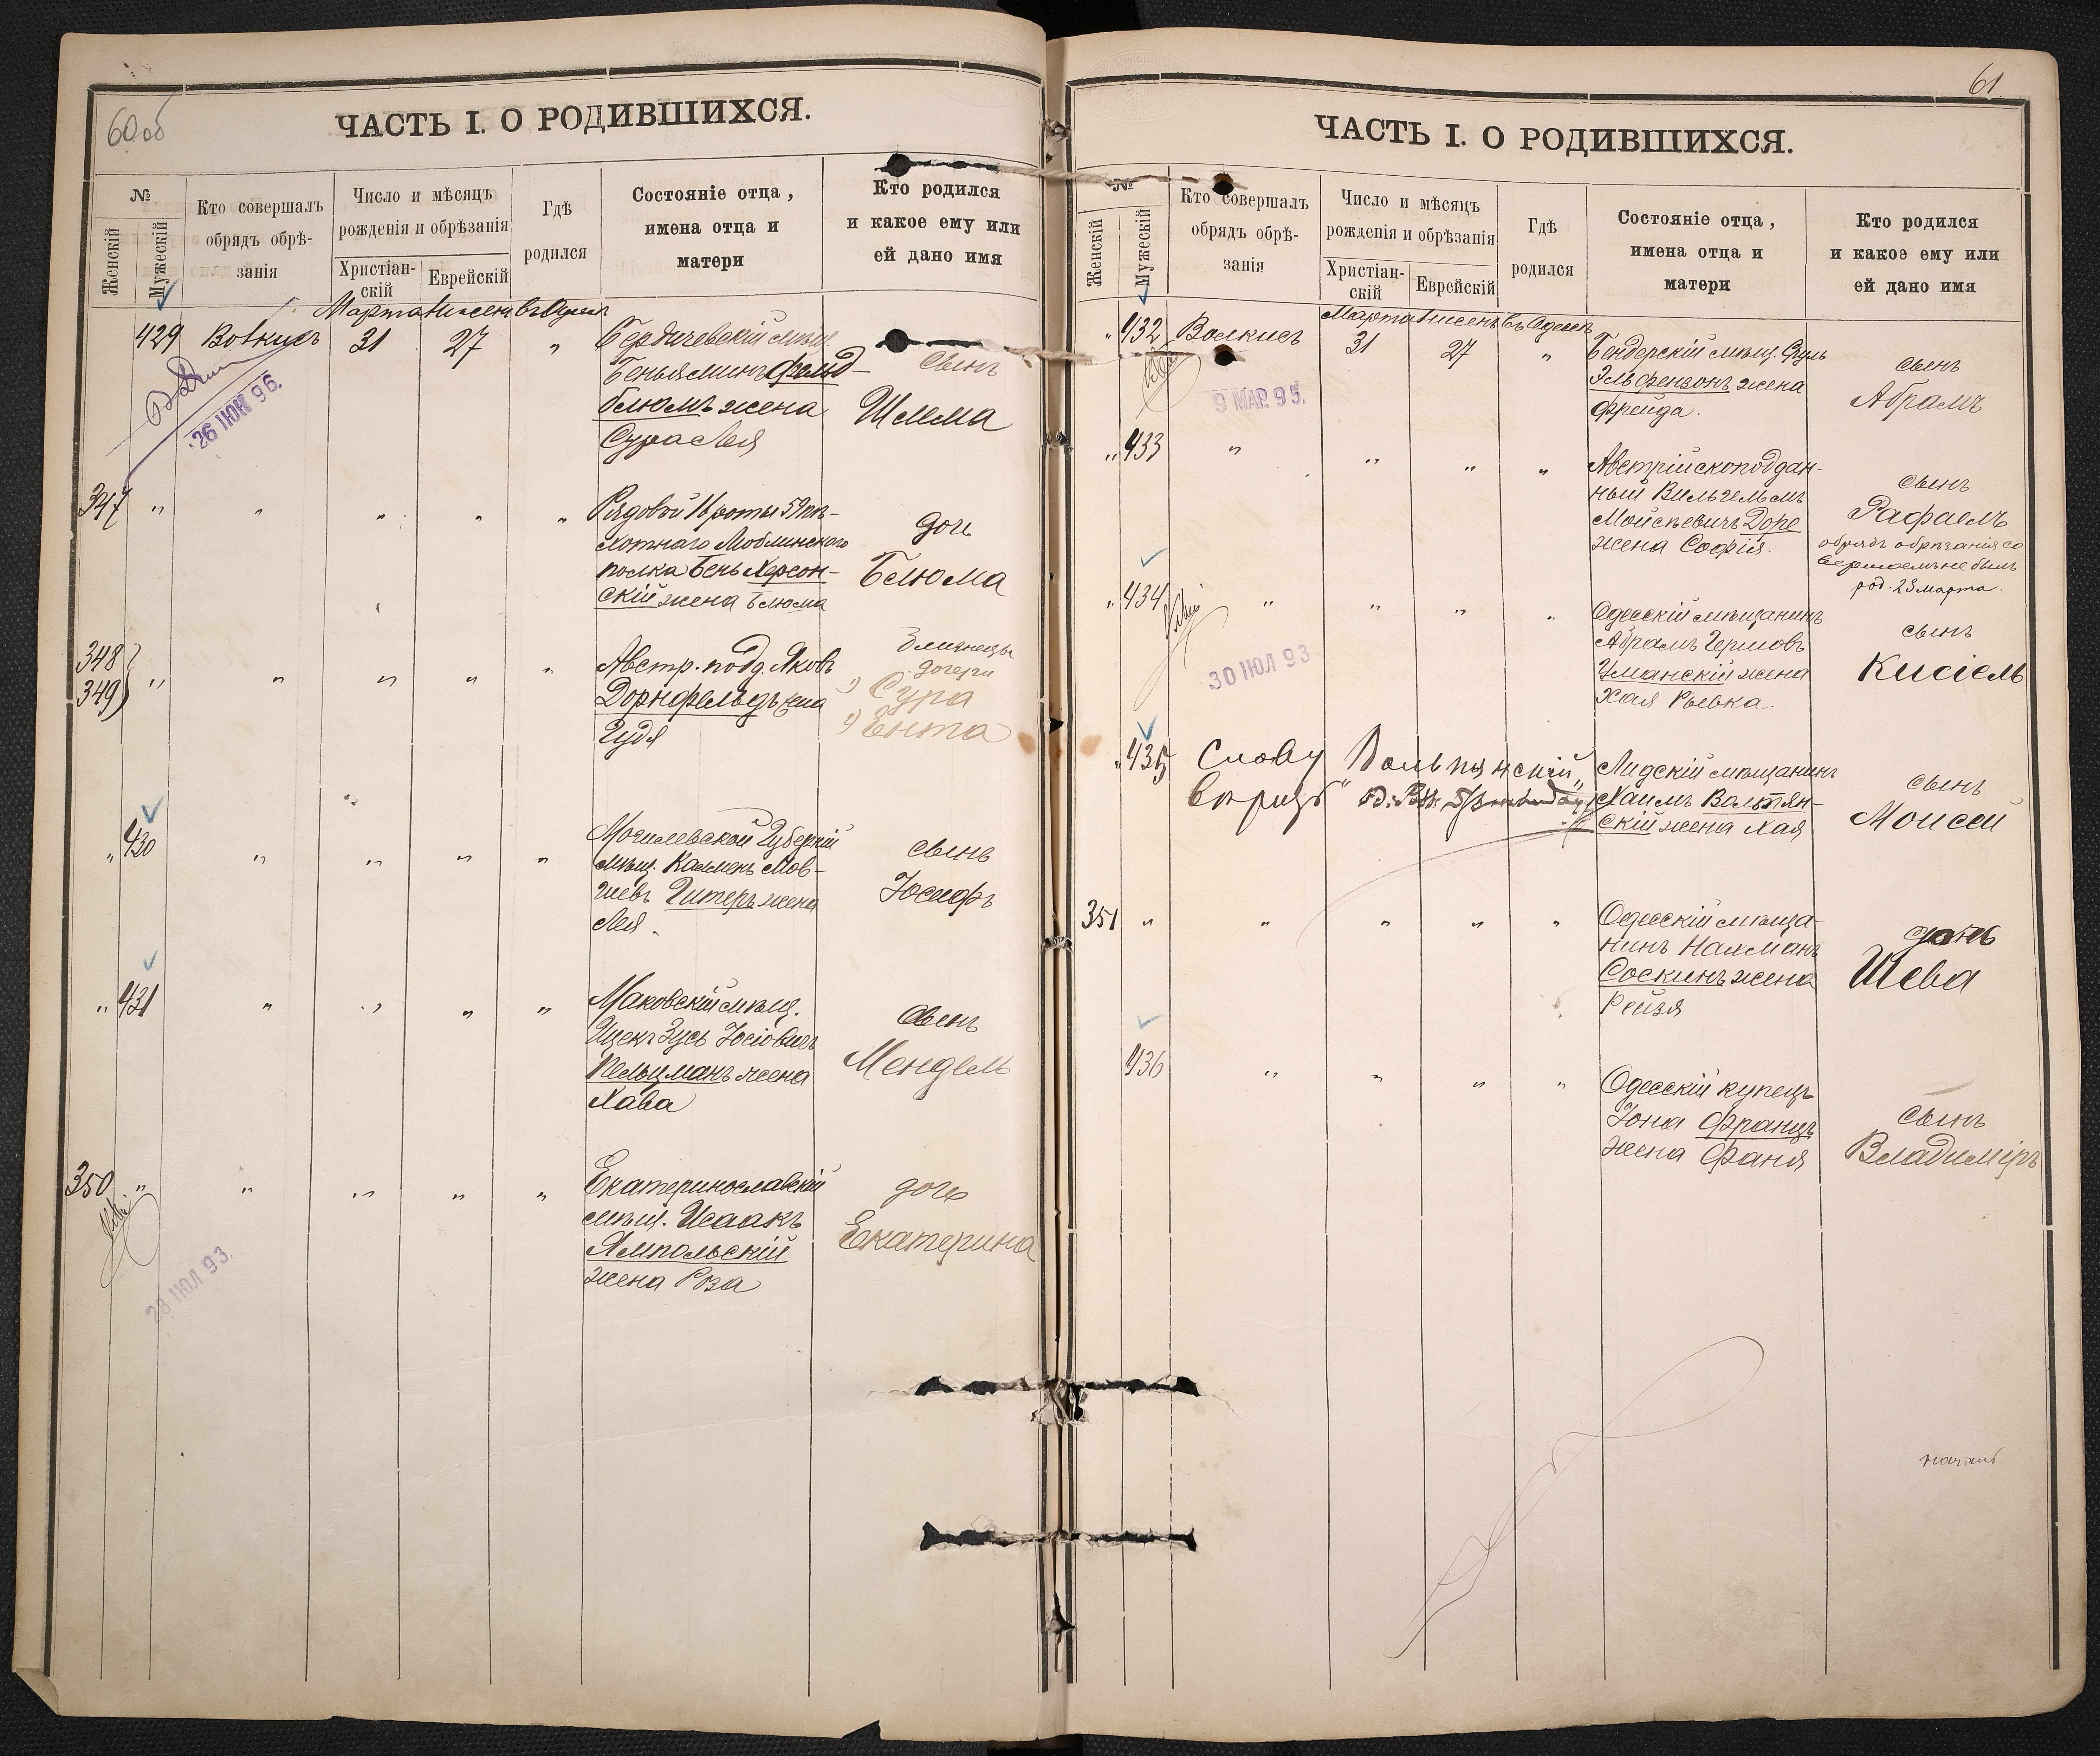 60 об
ЧАСТЬ I. О РОДИВШИХСЯ.
№
Женскій
Мужескій
Кто совершалъ
обрядъ обрѣ-
занія
Число и мѣсяцъ
рожденія и обрѣзанія
Христіан-
скій
Еврейскій
Гдѣ
родился
Состояніе отца,
имена отца и
матери
Кто родился
и какое ему или
ей дано имя
Марта Нисенъ въ Одессѣ
429 Волкисъ 31 27 "
Бердичевскій мѣщ.
Беньяминъ Фельд-
блюмъ жена
Сура Лея
сынъ
Шлема
26 ІЮН 96.
347 " " " " "
Рядовой 16 роты 59 пѣ-
хотнаго Люблинскаго
полка Бень Херсон-
скій жена Блюма
дочь
Блюма
348
349 " " " " "
Австр. подд. Яковъ
Дорнфельдъ жена
Гудя
близнецы
дочери
1) Сура
2) Ента
" 430 " " " "
Могилевской Губерніи
мѣщ. Калменъ Мов-
шевъ Гитеръ жена
Лея.
сынъ
Іосифъ
" 431 " " " "
Маковскій мѣщ.
Ицекъ Зусь Іосіовичъ
Кельцманъ жена
Хава
сынъ
Мендель
350 " " " " "
Екатеринославскій
мѣщ. Исаакъ
Ямпольскій
жена Роза
дочь
Екатерина
28 ІЮЛ 93.
61
ЧАСТЬ I. О РОДИВШИХСЯ.
№
Женскій
Мужескій
Кто совершалъ
обрядъ обрѣ-
занія
Число и мѣсяцъ
рожденія и обрѣзанія
Христіан-
скій
Еврейскій
Гдѣ
родился
Состояніе отца,
имена отца и
матери
Кто родился
и какое ему или
ей дано имя
Марта Нисенъ въ Одессѣ
" 432 Волкисъ 31 27 "
Бендерскій мѣщ. Сруль
Эльфензонъ жена
Фрейда.
сынъ
Абрамъ
9 МАР. 95.
" 433 " " " "
Австрійскоподдан-
ный Вильгельмъ
Мойсѣевичъ Доре
жена Софія.
сынъ
Рафаелъ
обрядъ обрѣзанія со
вершаемъ не былъ
род. 23 марта.
" 434 " " " "
Одесскій мѣщанинъ
Абрамъ Гершовъ
Уманскій жена
Хая Рывка.
сынъ
Кисіель
30 ІЮЛ 93
" 435 Слову Вольпянскій
вѣрить
Лидскій мѣщанинъ
Хаимъ Вольпян-
скій жена Хая
сынъ
Моисей
351 " " " " "
Одесскій мѣща-
нинъ Нахманъ
Соскинъ жена
Рейзя
дочь
Шева
436 " " " "
Одесскій купецъ
Іона Францъ
жена Фаня
сынъ
Владиміръ